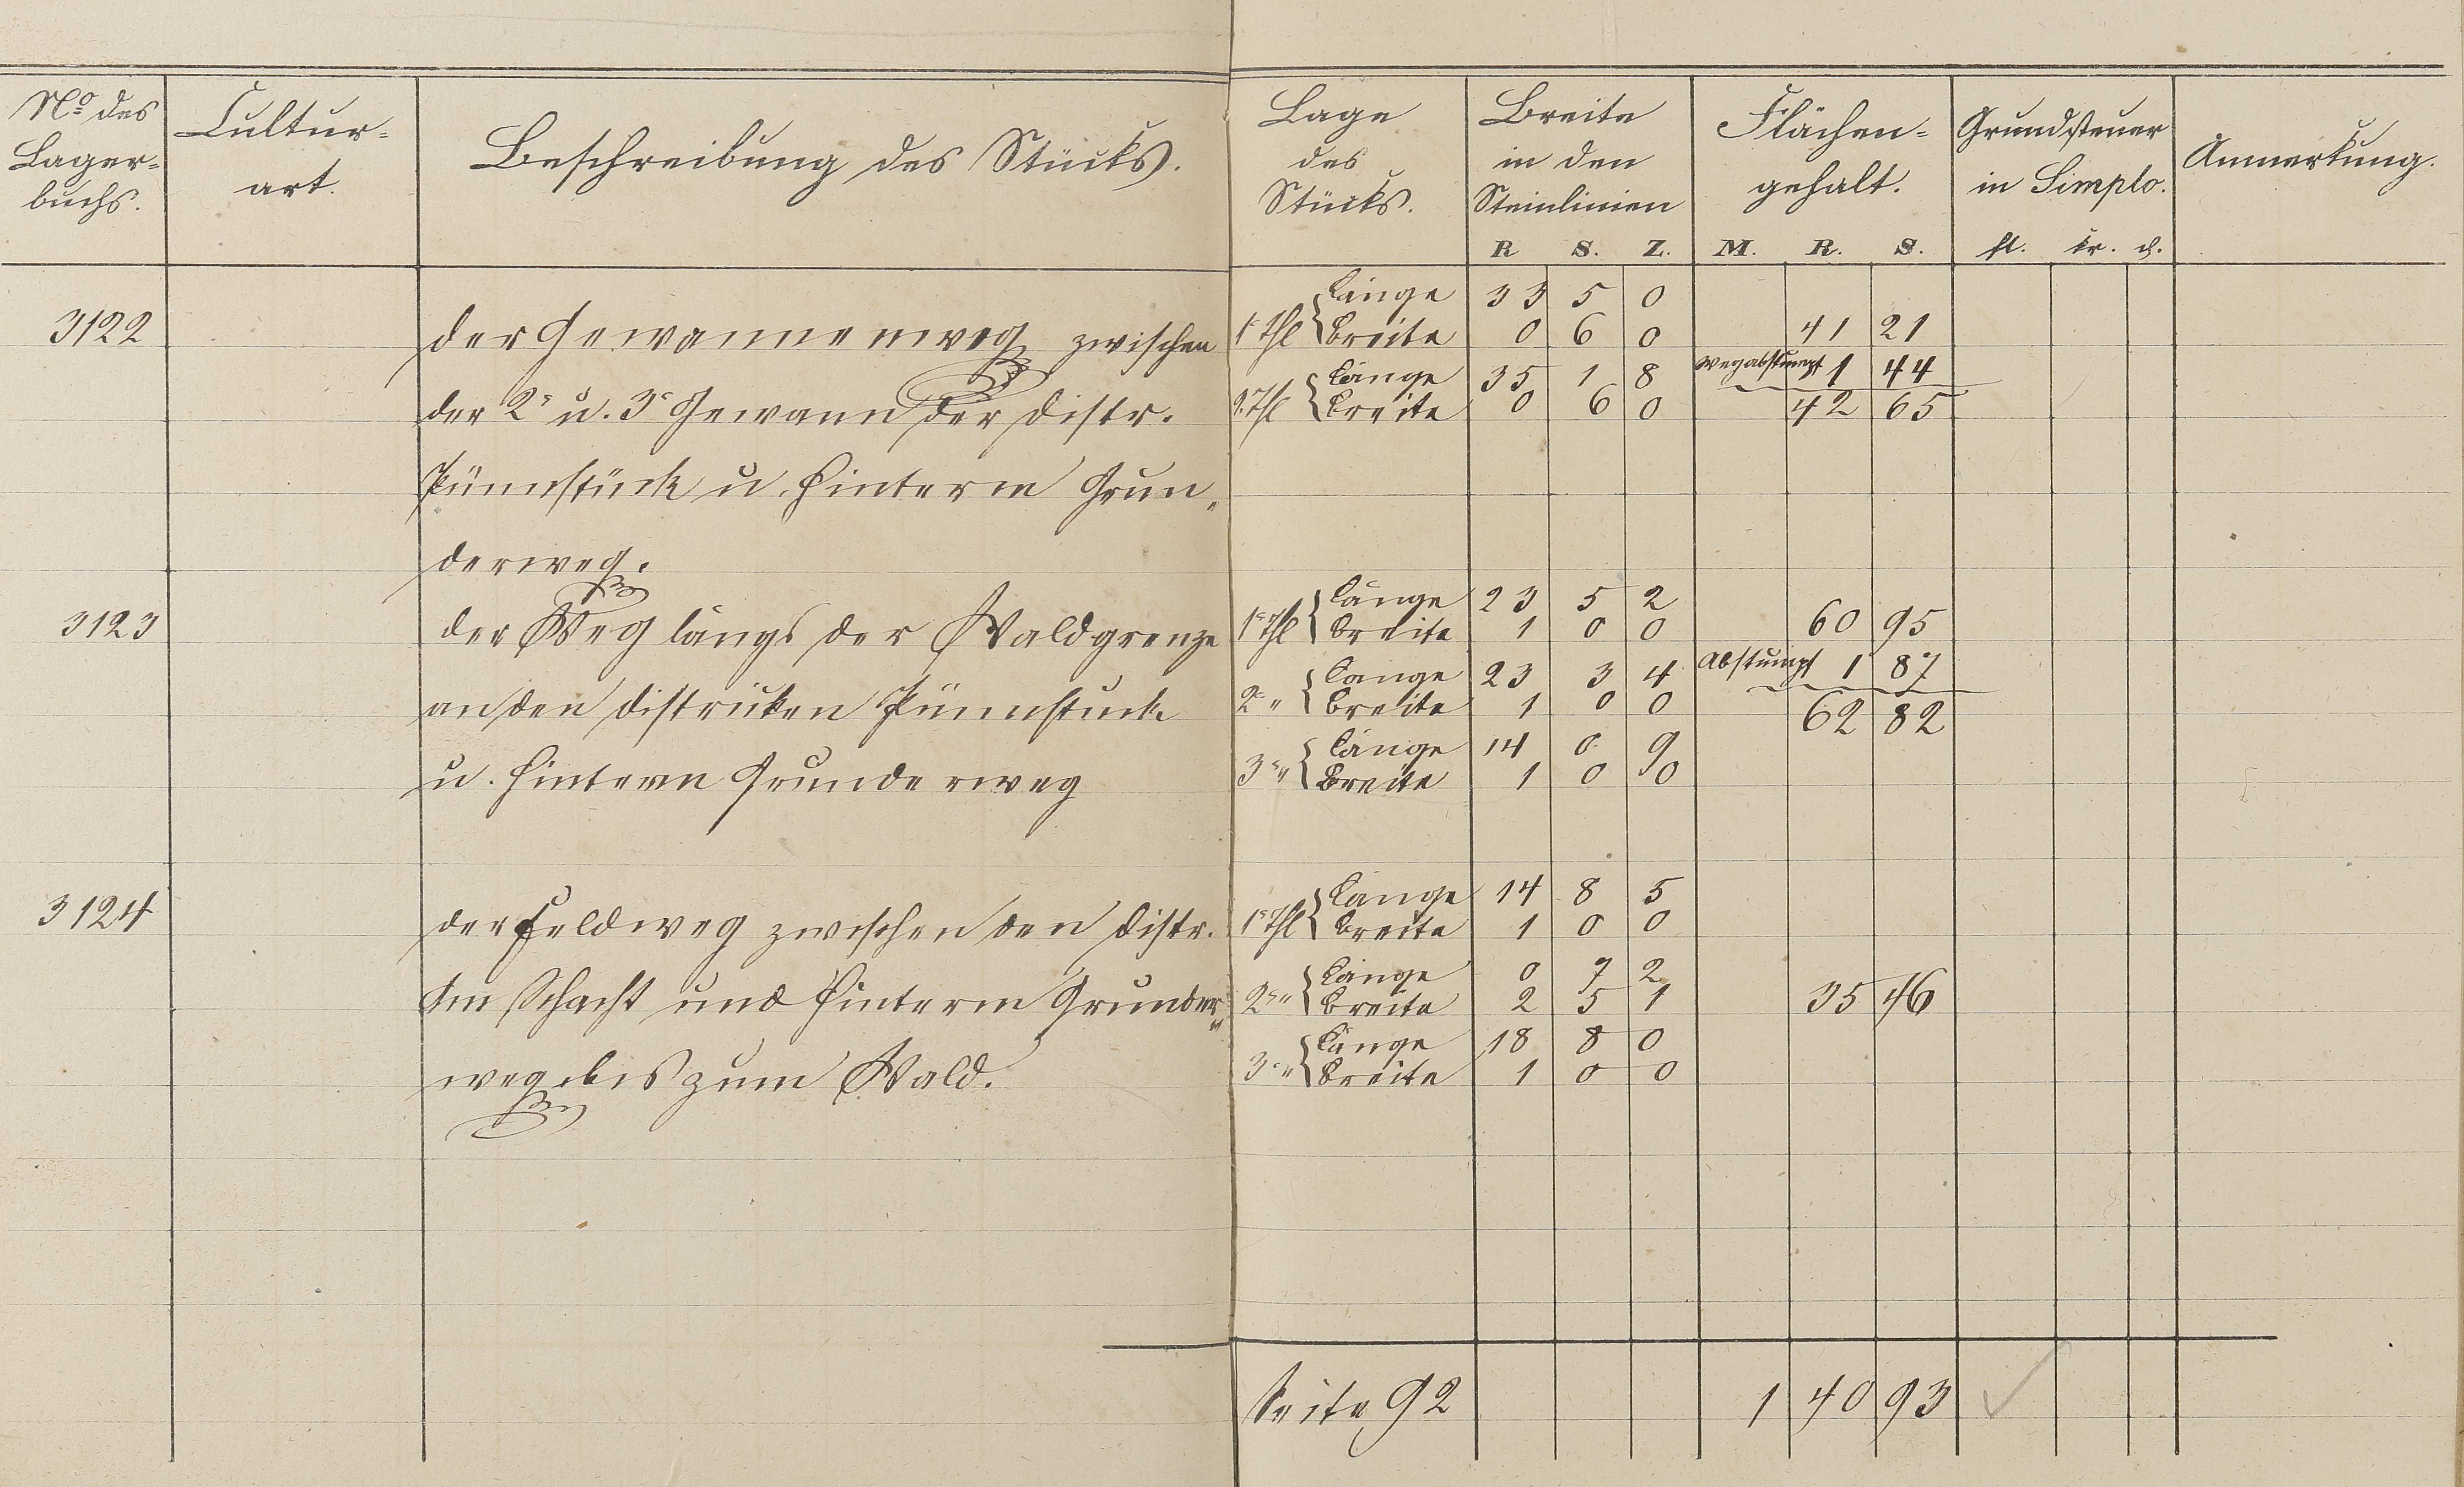 No des Lagerbuchs.
Culturart.
Beschreibung des Stücks.
Lage des Stücks.
Breite in den Steinlinien
R S. Z.
Flächengehalt.
M. R. S.
Grundsteuer in Simplo.
fl. kr. d.
Anmerkung.
3122
der Gewannenweg zwischen
der 2r u. 3r Gewann der Distr.
u. Hinterm Grun„
derweg.
1r Thl Länge 33 5 0
Breite 0 6 0 41 21
2r Thl Länge 35 1 8 Wegabstumpf 1 44
Breite 0 6 0 42 65
3123
der Weg längs der Waldgrenze
an den Distrikten
u. Hinterm Grunderweg
1r Thl Länge 23 5 2
Breite 1 0 0 60 95
2r „ Länge 23 3 4 Abstumpf 1 87
Breite 1 0 0 62 82
3r „ Länge 14 0 9
Breite 1 0 0
3124
der Feldweg zwischen den Distr.
Im Schacht und Hinterm Grunder„
weg bis zum Wald.
1r Thl Länge 14 8 5
Breite 1 0 0
2r „ Länge 0 7 2
Breite 2 5 1 35 46
3r „ Länge 18 8 0
Breite 1 0 0
Seite 92 1 40 93